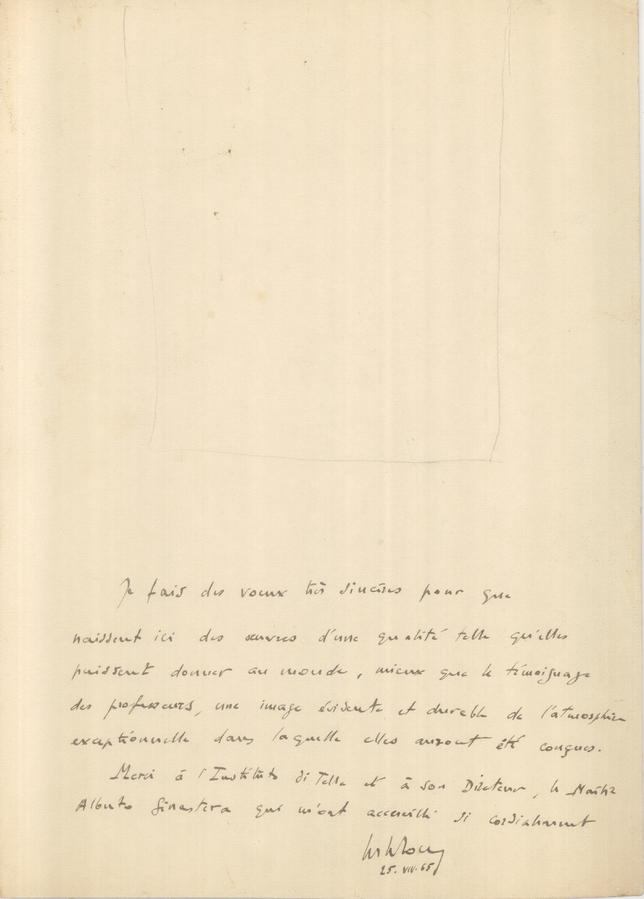 Je fais des voeux très sincères pour que
naissent ici des œuvres d'une qualité telle qu'elles
puissent donner au monde, mieux que le témoignage
des professeurs, une image évidente et durable de l'atmosphère
exceptionnelle dans laquelle elles auront été conçues.
Merci à l'Instituto di Tella et à son Directeur, le Maître
Alberto Ginastera qui m'ont accueilli si cordialement
25.VIII.65